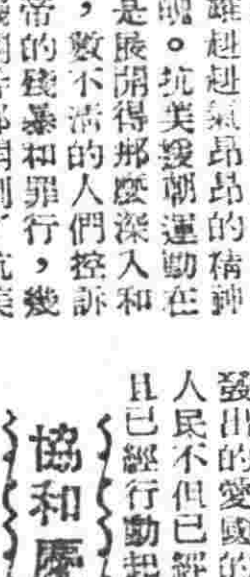 雄赳赳氣昂昂的精神
。抗美援朝運動在
是展開得那麼深入和
，數不清的人們控訴
帝的殘暴和罪行，幾
抗美
發出的愛國的
人民不但已經
且已經行動起
協和慶